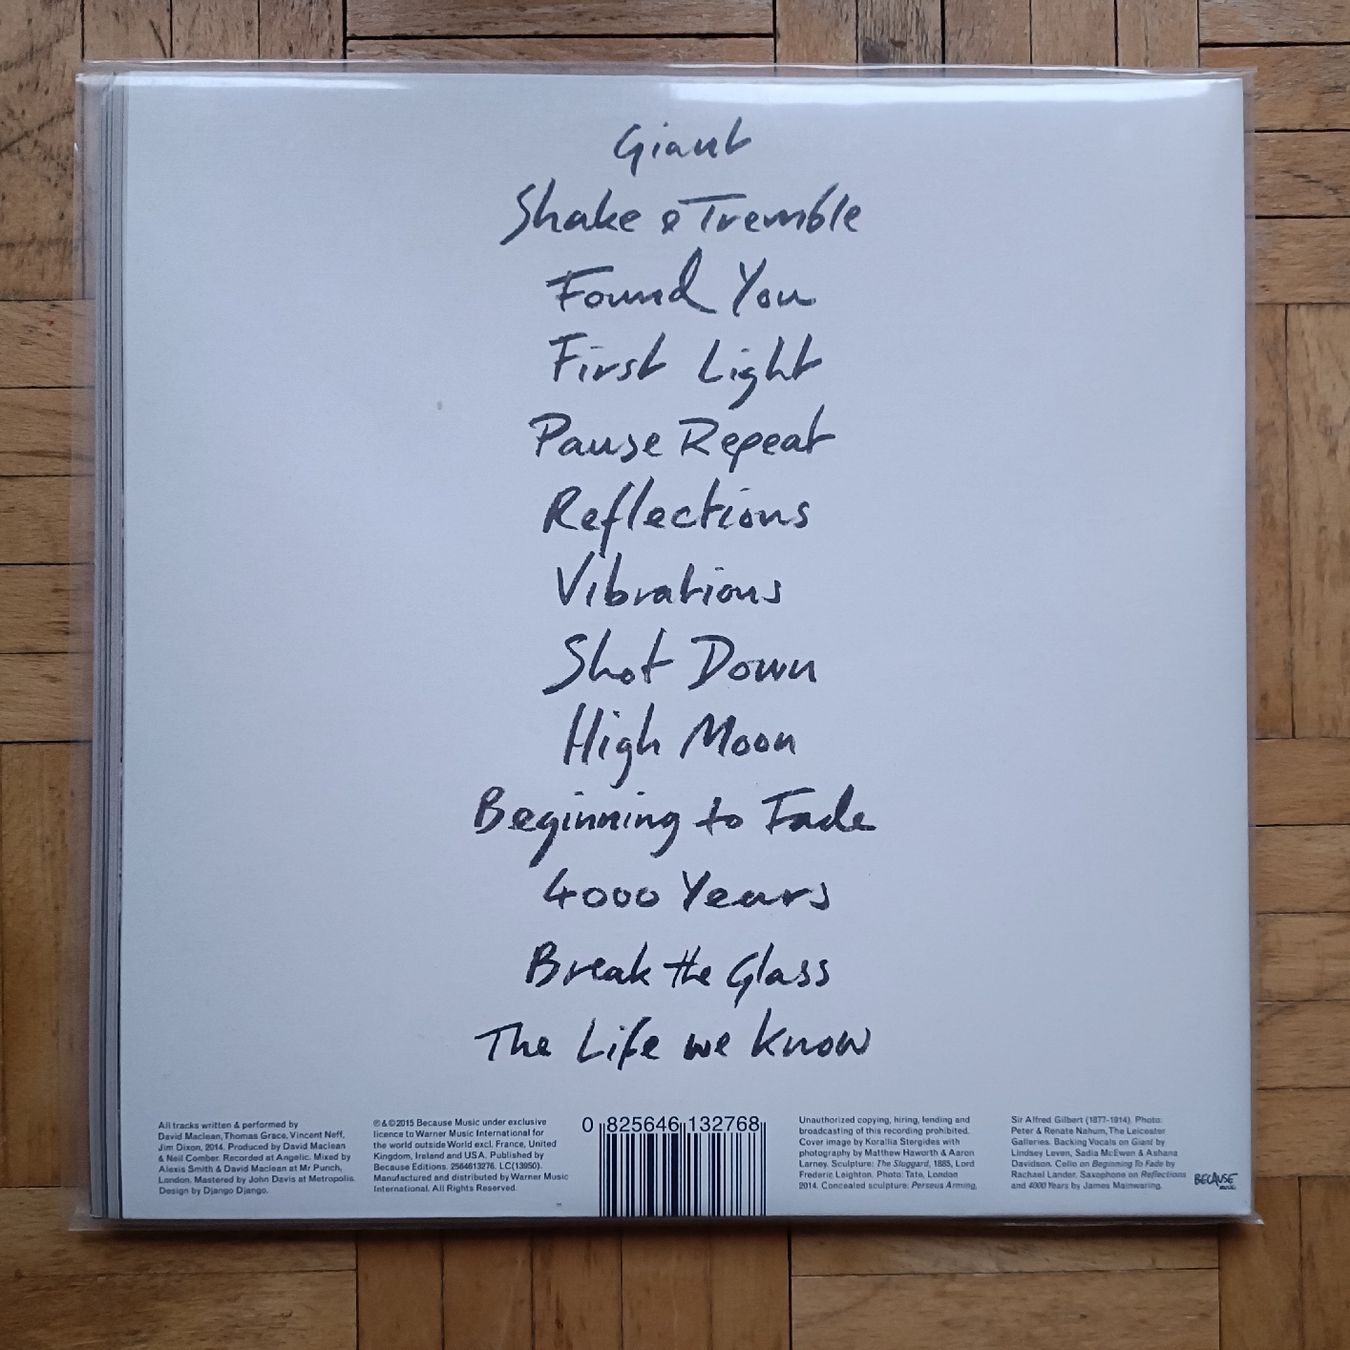 Giant
Shake & Tremble
Found You
First Light
Pause Repeat
Reflections
Vibrations
Shot Down
High Moon
Beginning to Fade
4000 Years
Break the Glass
The Life we know
All tracks written & performed by
David Maclean, Thomas Grace, Vincent Neff,
Jim Dixon, 2014. Produced by David Maclean
& Neil Comber. Recorded at Angelic. Mixed by
Alexis Smith & David Maclean at Mr Punch,
London. Mastered by John Davis at Metropolis.
Design by Django Django.
℗ & © 2015 Because Music under exclusive
licence to Warner Music International for
the world outside World excl. France, United
Kingdom, Ireland and USA. Published by
Because Editions. 2564613276. LC(13950).
Manufactured and distributed by Warner Music
International. All Rights Reserved.
0 825646 132768
Unauthorized copying, hiring, lending and
broadcasting of this recording prohibited.
Cover image by Korallia Stergides with
photography by Matthew Haworth & Aaron
Larney. Sculpture: The Sluggard, 1885, Lord
Frederic Leighton. Photo: Tate, London
2014. Concealed sculpture: Perseus Arming,
Sir Alfred Gilbert (1877-1914). Photo:
Peter & Renate Nahum, The Leicester
Galleries. Backing Vocals on Giant by
Lindsey Leven, Sadia McEwen & Ashana
Davidson. Cello on Beginning To Fade by
Rachael Lander. Saxophone on Reflections
and 4000 Years by James Mainwaring.
BECAUSE
music